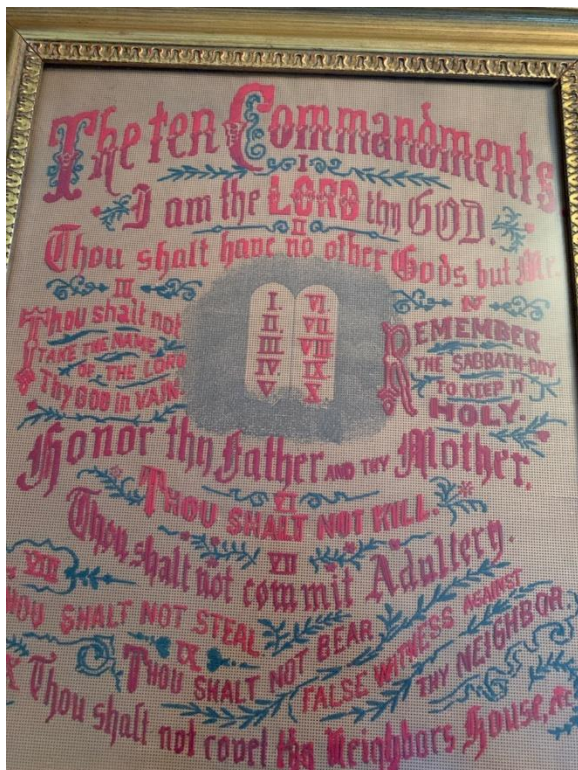 The ten Commandments
I
I am the LORD thy GOD.
II
Thou shalt have no other Gods but Me.
III
Thou shalt not
TAKE THE NAME
OF THE LORD
Thy GOD in VAIN
I. VI.
II. VII.
III. VIII.
IV. IX.
V X
IV
REMEMBER
THE SABBATH-DAY
TO KEEP IT
HOLY.
Honor thy Father AND THY Mother.
VI
THOU SHALT NOT KILL.
VII
Thou shalt not commit Adultery.
VIII
THOU SHALT NOT STEAL
IX
THOU SHALT NOT BEAR
FALSE WITNESS AGAINST
THY NEIGHBOR.
X Thou shalt not covet thy Neighbors House, &c.